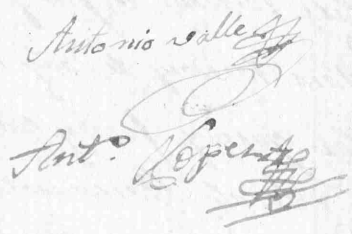 Antonio valle
Ant.º Lopez